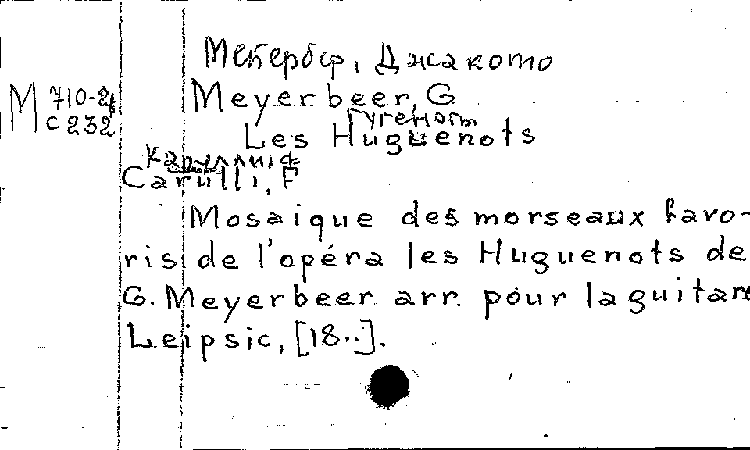 Мейербер, Джакомо
M 710-2
c 232
Meyerbeer, G
Гугеноты
Les Huguenots
Карулли Ф
Carulli, F
Mosaique des morseaux favo-
ris de l'opéra les Huguenots de
G. Meyerbeer arr. pour la guitare
Leipsic, [18..].